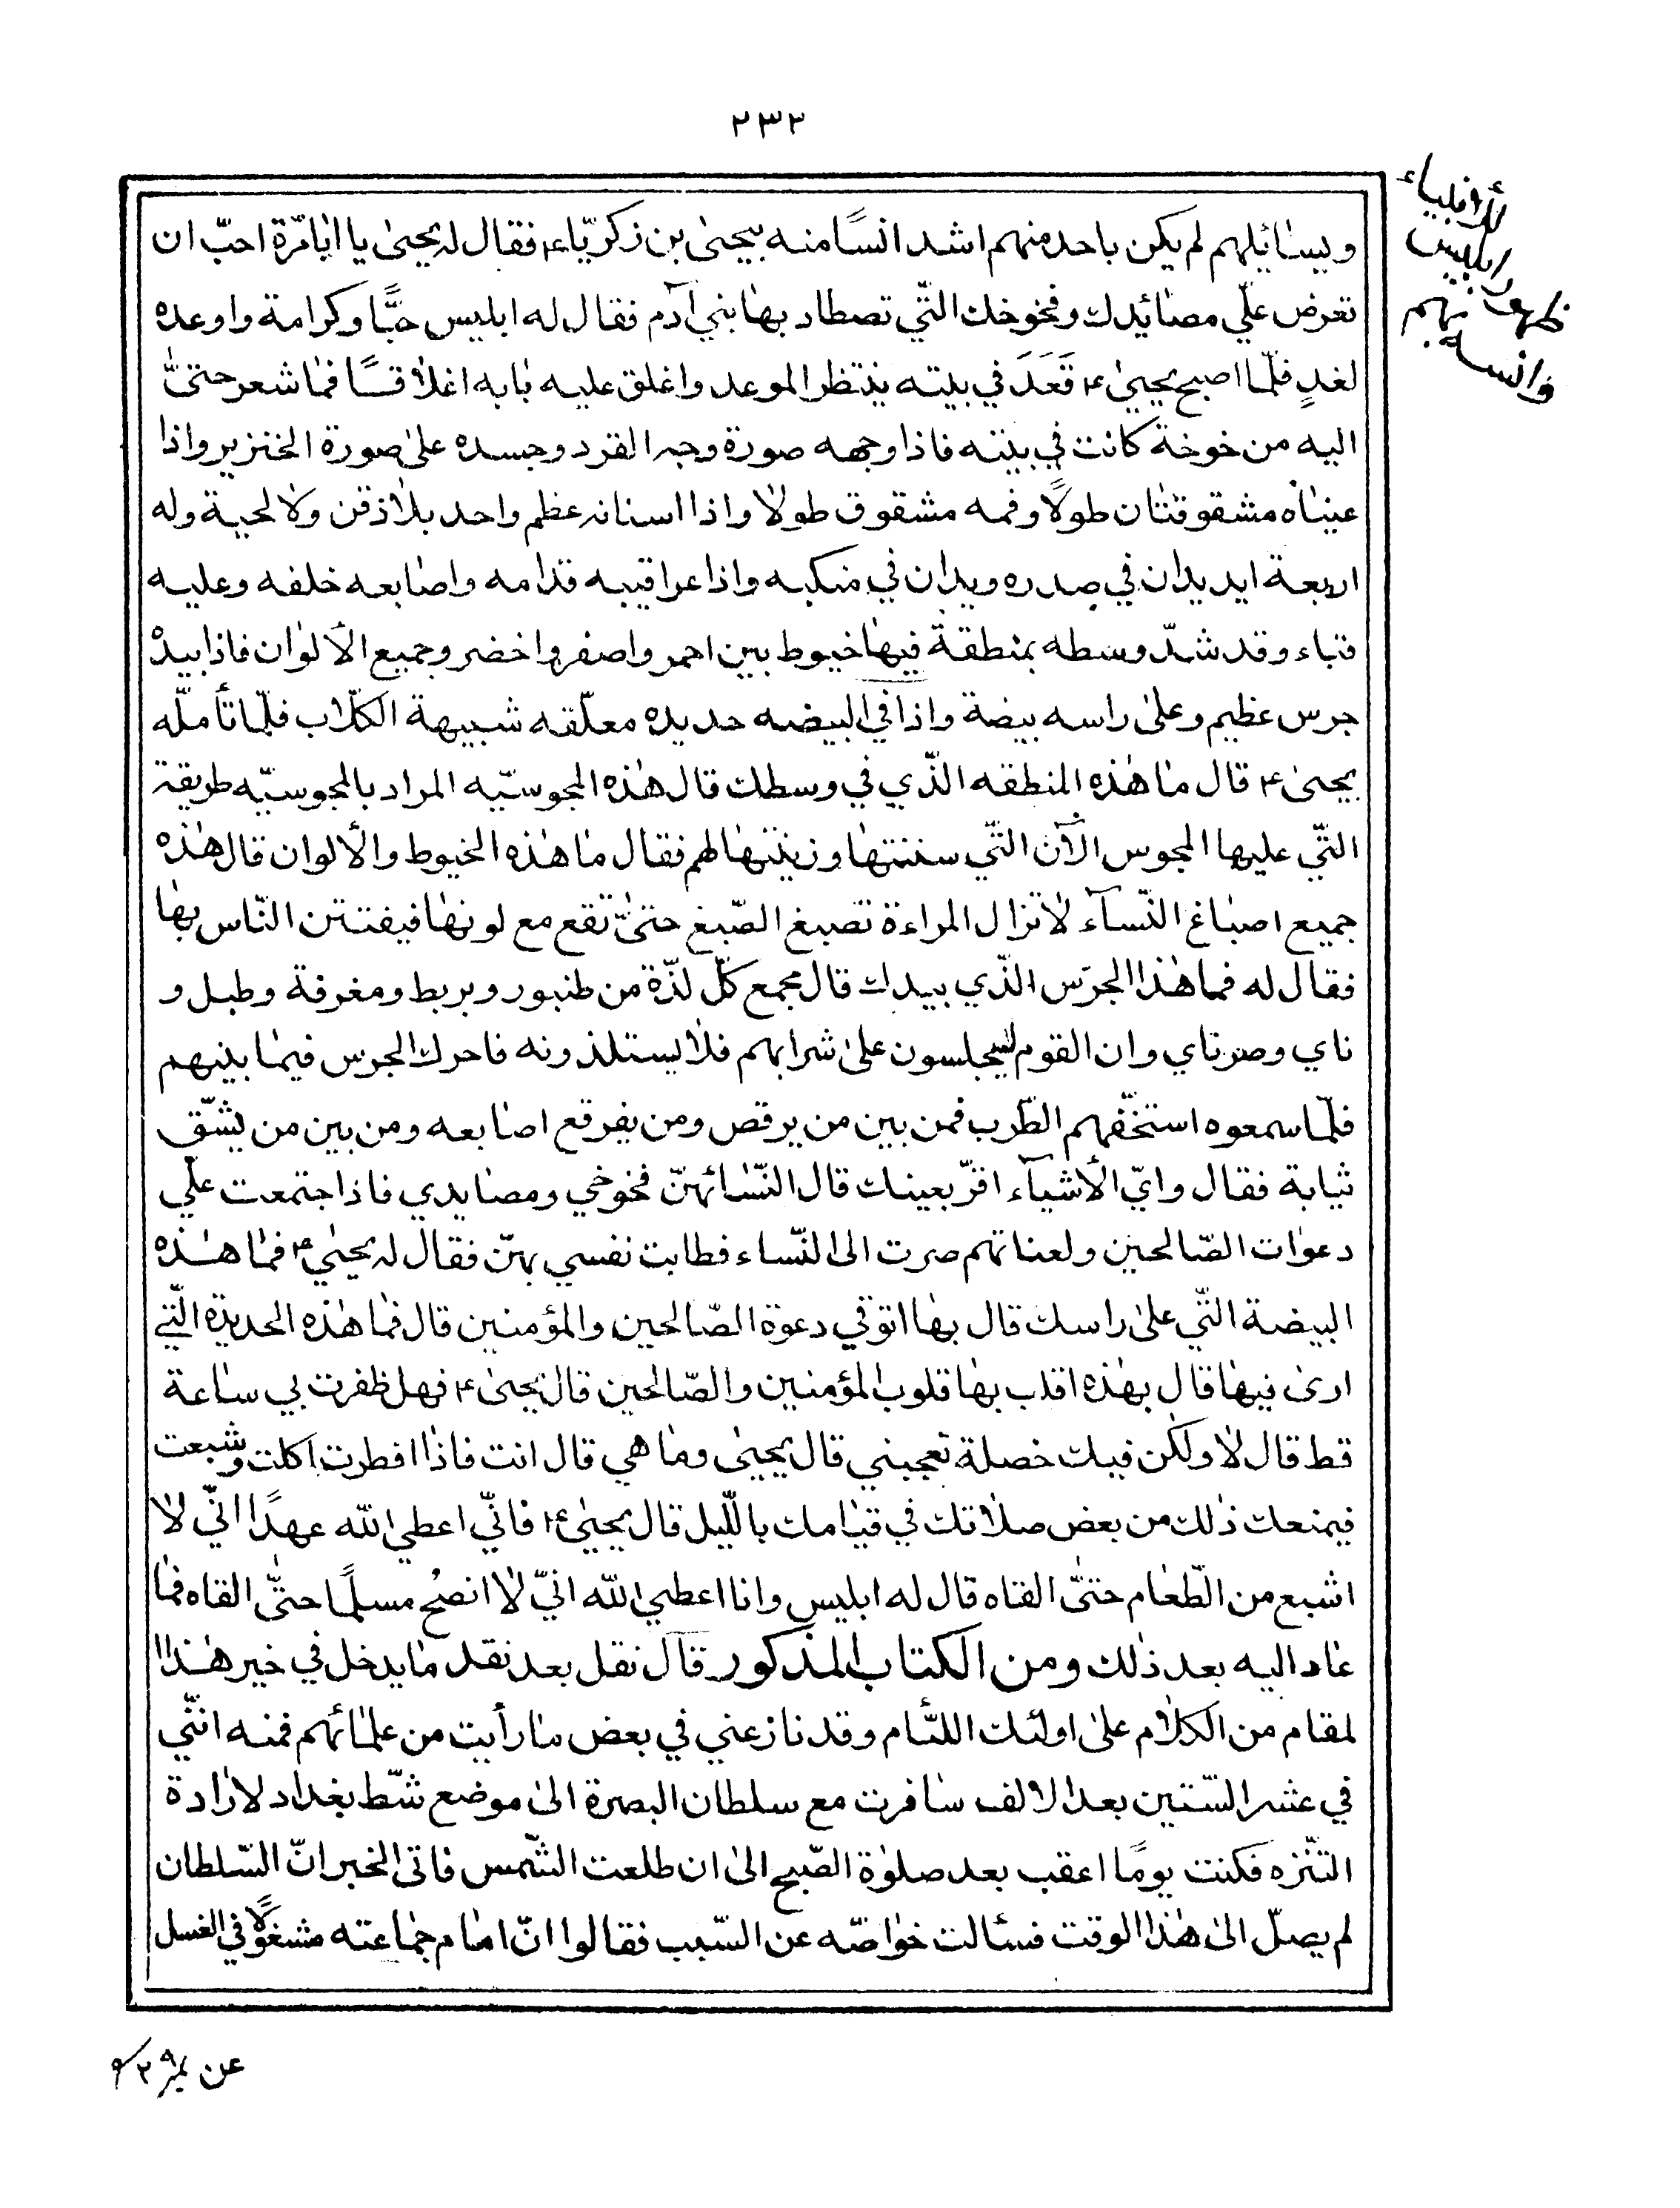 ٢٣٢
ظهور ابليس للأنبياء
وانسه بهم
ويسٰائيلهم لم يكن باحد منهم اشد انسًا منه بيحيىٰ بن زكريّاء؏ فقال له يحيىٰ يا ابٰامرّة احبّ ان
تعرض علّي مصٰائيدك وفخوخك التّي تصطاد بهٰا بني آدم فقال له ابليس حبًّا وكرامة واوعده
لغدٍ فلمّا اصبح يحييٰ؏ قَعَدَ في بيته ينتظر الموعد واغلق عليه بٰابه اغلاقًا فمٰا شعر حتىّٰ
اليه من خوخة كانت في بيته فاذا وجهه صورة وجه القرد وجسده علىٰ صورة الخنزير واذا
عينٰاه مشقوقتٰان طولًا وفمه مشقوق طولًا واذا اسنانه عظم واحد بلا ذقن ولا لحية وله
اربعة ايد يدان في صدره ويدان في منكبه واذا عراقيبه قدّامه واصٰابعه خلفه وعليه
قباء وقد شدّ وسطه بمنطقة فيهٰا خيوط بين احمر واصفر واخضر وجميع الألوٰان فاذا بيدهٰ
جرس عظيم وعلىٰ راسه بيضة واذا في البيضه حديده معلّقه شبيهة الكلّاب فلمّا تأملّه
يحيىٰ؏ قال مٰا هٰذه المنطقه الذّي في وسطك قال هٰذه المجوسيّه المراد بالمجوسيّه طريقة
التّي عليها المجوس الآن التّي سننتها وزينتهٰا لهم فقال مٰا هٰذه الخيوط والألوان قال هٰذه
جميع اصبٰاغ النّسآء لا تزال المراءة تصبغ الصّبغ حتىّٰ تقع مع لونهٰا فيفتتن النّاس بهٰا
فقال له فما هٰذا الجرَس الذّي بيدك قال مجمع كلّ لذّة من طنبور وبربط ومغرفة وطبل و
ناي وصرناي وان القوم ليجلسون علىٰ شرابهم فلا يستلذونه فاحرك الجرس فيمٰا بينهم
فلمّا سمعوه استخفّهم الطّرب فمن بين من يرقص ومن يفرقع اصٰابعه ومن بين من يشّق
ثيابة فقال وايّ الأشيآء اقرّ بعينك قال النّسٰائهنّ فخوخي ومصٰايدي فاذا اجتمعت علّي
دعوٰات الصّالحين ولعناتهم صرت الى النّساء فطابت نفسي بهنّ فقال له يحيىٰ؏ فمٰا هٰذه
البيضة التّي علىٰ راسك قال بهٰا اتوّقي دعوة الصّالحين والمؤمنين قال فمٰا هٰذه الحديدة التّي
ارىٰ فيهٰا قال بهٰذه اقلب بهٰا قلوب المؤمنين والصّالحين قال يحيىٰ؏ فهل ظفرت بي سٰاعة
قط قال لا ولكن فيك خصلة تعجبني قال يحيىٰ ومٰا هي قال انت فاذٰا افطرت اكلت وشبعت
فيمنعك ذٰلك من بعض صلاتك في قيٰامك بالّليل قال يحيىٰ؏ فانّي اعطي الله عهدًا انّي لا
اشبع من الطّعٰام حتىّٰ القاه قال له ابليس وانا اعطي الله انيّ لا انصحُ مسلمًا حتىّٰ القاه فمٰا
عٰاد اليه بعد ذٰلك ومن الكتاب المذكور قال نقل بعد نقل مٰا يدخل في خير هٰذا
لمقام من الكلام علىٰ اولئك اللئام وقد نازعني في بعض مٰا رأيت من علمٰائهم فمنه انّني
في عشر السّتين بعد الالف سٰافرت مع سلطان البصرة الىٰ موضع شّط بغداد لارٰادة
التنّزه فكنت يومًا اعقب بعد صلوٰة الصّبح الىٰ ان طلعت الشّمس فاتى الخبر انّ السّلطان
لم يصلّ الىٰ هٰذا الوقت فسئالت خوٰاصّه عن السّبب فقالوا انّ امٰام جمٰاعته مشغولًا في الغسل
عن